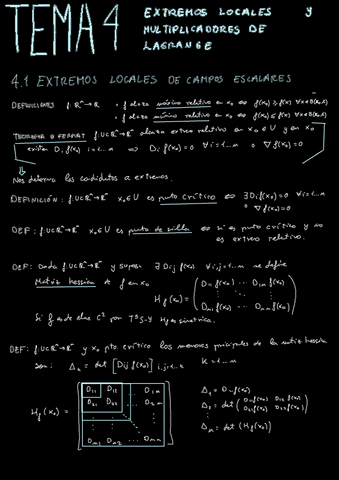 TEMA 4
EXTREMOS LOCALES Y
MULTIPLICADORES DE
LAGRANGE
4.1 EXTREMOS LOCALES DE CAMPOS ESCALARES
DEFINICIONES f: ℝⁿ→ℝ • f alcanza máximo relativo en x₀ ⇔ f(x₀) ≥ f(x) ∀x∈B(x₀,δ)
• f alcanza mínimo relativo en x₀ ⇔ f(x₀) ≤ f(x) ∀x∈B(x₀,δ)
TEOREMA D FERMAT f: U⊂ℝⁿ→ℝ alcanza extremo relativo en x₀∈U y en x₀
existen Dᵢf(x₀) i=1...n ⇒ Dᵢf(x₀)=0 ∀i=1...n o ∇f(x₀)=0
⇓
Nos determina los candidatos a extremos.
DEFINICIÓN: f: U⊂ℝⁿ→ℝ x₀∈U es punto crítico ⇔ ∃ Dᵢf(x₀)=0 ∀i=1...n
o ∇f(x₀)=0
DEF: f: U⊂ℝⁿ→ℝ x₀∈U es punto de silla ⇔ si es punto crítico y no
es extremo relativo.
DEF: Dada f: U⊂ℝⁿ→ℝ y supon. ∃ Dᵢⱼf(x₀) ∀i,j=1...n se define
Matriz hessiana de f en x₀
H_f(x₀) = ( D₁₁f(x₀) ... D₁ₙf(x₀)
⋮ ⋱ ⋮
Dₙ₁f(x₀) ... Dₙₙf(x₀) )
Si f es de clase C² por T S-Y H_f es simétrica.
DEF: f: U⊂ℝⁿ→ℝ y x₀ pto. crítico los menores principales de la matriz hessiana
son: Δₖ = det [Dᵢⱼf(x₀)] i,j=1..k K=1...n
H_f(x₀) = [ D₁₁ D₁₂ ... D₁ₙ
D₂₁ D₂₂ ... D₂ₙ
⋮ ⋱ ⋮
Dₙ₁ Dₙ₂ ... Dₙₙ ]
Δ₁ = D₁₁f(x₀)
Δ₂ = det ( D₁₁f(x₀) D₁₂f(x₀)
D₂₁f(x₀) D₂₂f(x₀) )
⋮
Δₙ = det (H_f(x₀))